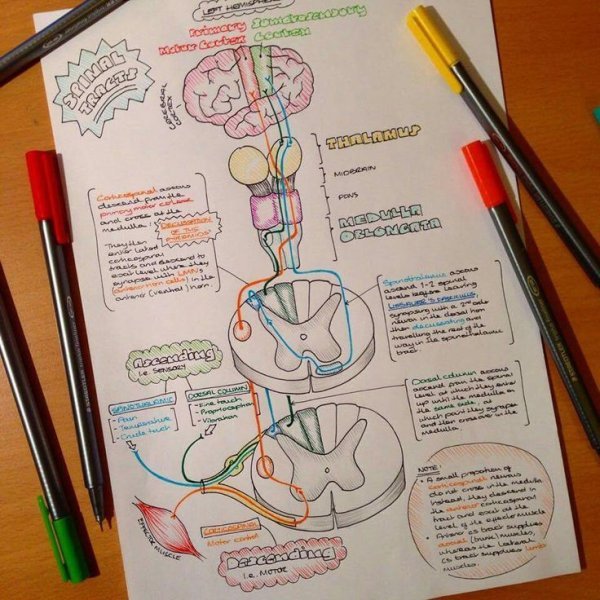 LEFT HEMISPHERE
Primary Somatosensory
Motor Cortex Cortex
SPINAL
TRACTS
CEREBRAL
CORTEX
THALAMUS
MIDBRAIN
PONS
MEDULLA
OBLONGATA
Corticospinal axons
descend from the
primary motor cortex
and cross at the
medulla
DECUSSATION
OF THE
PYRAMIDS
They then
enter lateral
corticospinal
tracts and descend to
exit level where they
synapse with LMN's
(anterior horn cells) in the
anterior (ventral) horn.
Spinothalamic axons
ascend 1-2 spinal
levels before leaving
LISSAUER'S FASCICULUS,
synapsing with a 2nd order
neuron in the dorsal horn
then decussating and
travelling the rest of the
way in the spinothalamic
tract.
Ascending
i.e. SENSORY
SPINOTHALAMIC
- Pain
- Temperature
- Crude touch
DORSAL COLUMN
- Fine touch
- Proprioception
- Vibration
Dorsal column axons
ascend from the spinal
level at which they enter
up until the medulla on
the same side, at
which point they synapse
and then crossover in the
medulla.
EFFECTOR MUSCLE
CORTICOSPINAL
Motor control
Descending
i.e. MOTOR
NOTE:
• A small proportion of
corticospinal neurons
do not cross in the medulla
instead, they descend in
the anterior corticospinal
tract and exit at the
level of the effector muscle
• Anterior cs tract supplies
axial (trunk) muscles,
whereas the lateral
cs tract supplies limb
muscles.
STAEDTLER